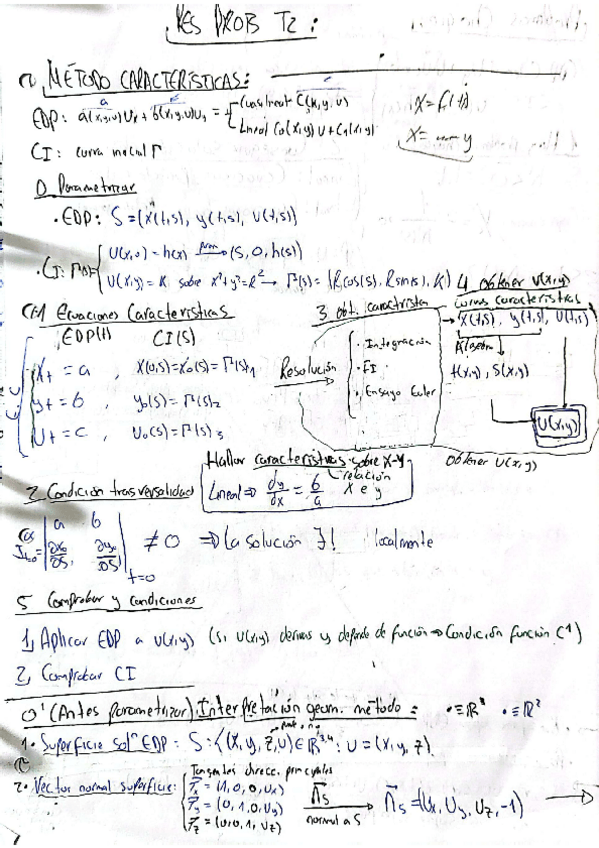 RES PROB T2:
MÉTODO CARACTERÍSTICAS:
EDP: a(x,y,u)Ux + b(x,y,u)Uy = { Cuasilineal C(x,y,u)
Lineal C0(x,y)U + C1(x,y)
X = f(t)
X = y
CI: curva inicial Γ
0 Parametrizar
· EDP: S = (X(t,s), y(t,s), U(t,s))
· CI: Γ(s) = { U(x,0) = h(x) → (S, 0, h(s))
U(x,y) = K sobre x²+y²=R² → Γ(s) = (Rcos(s), Rsin(s), K)
1 Ecuaciones Características
EDP(t) CI(s)
Xt = a, X(0,s) = X0(s) = Γ(s)1
yt = b, y0(s) = Γ(s)2
Ut = c, U0(s) = Γ(s)3
Resolución
3 obt. característica
· Integración
· FI
· Ensayo Euler
4 obtener U(x,y)
curvas características
X(t,s), y(t,s), U(t,s)
Algebra
t(x,y), s(x,y)
U(x,y)
obtener U(x,y)
Hallar características sobre X-Y
Lineal ⇒ dy/dx = b/a relación X e y
2 Condición trasversalidad
J t=0 = | a b
∂x0/∂s, ∂y0/∂s | t=0 ≠ 0 ⇒ la solución ∃! localmente
5 Comprobar y condiciones
1, Aplicar EDP a U(x,y) (si U(x,y) derivas y depende de función ⇒ Condición función C¹)
2, Comprobar CI
0' (Antes parametrizar) Interpretación geom. método:
1· Superficie solⁿ EDP: S: {(x,y,z,u) ∈ ℝ³,⁴ : U = (x,y,z)
2· Vector normal superficie:
Tangentes direcc. principales
Tx = (1, 0, 0, Ux)
Ty = (0, 1, 0, Uy)
Tz = (0, 0, 1, Uz)
ns normal a S → ns = (Ux, Uy, Uz, -1) →